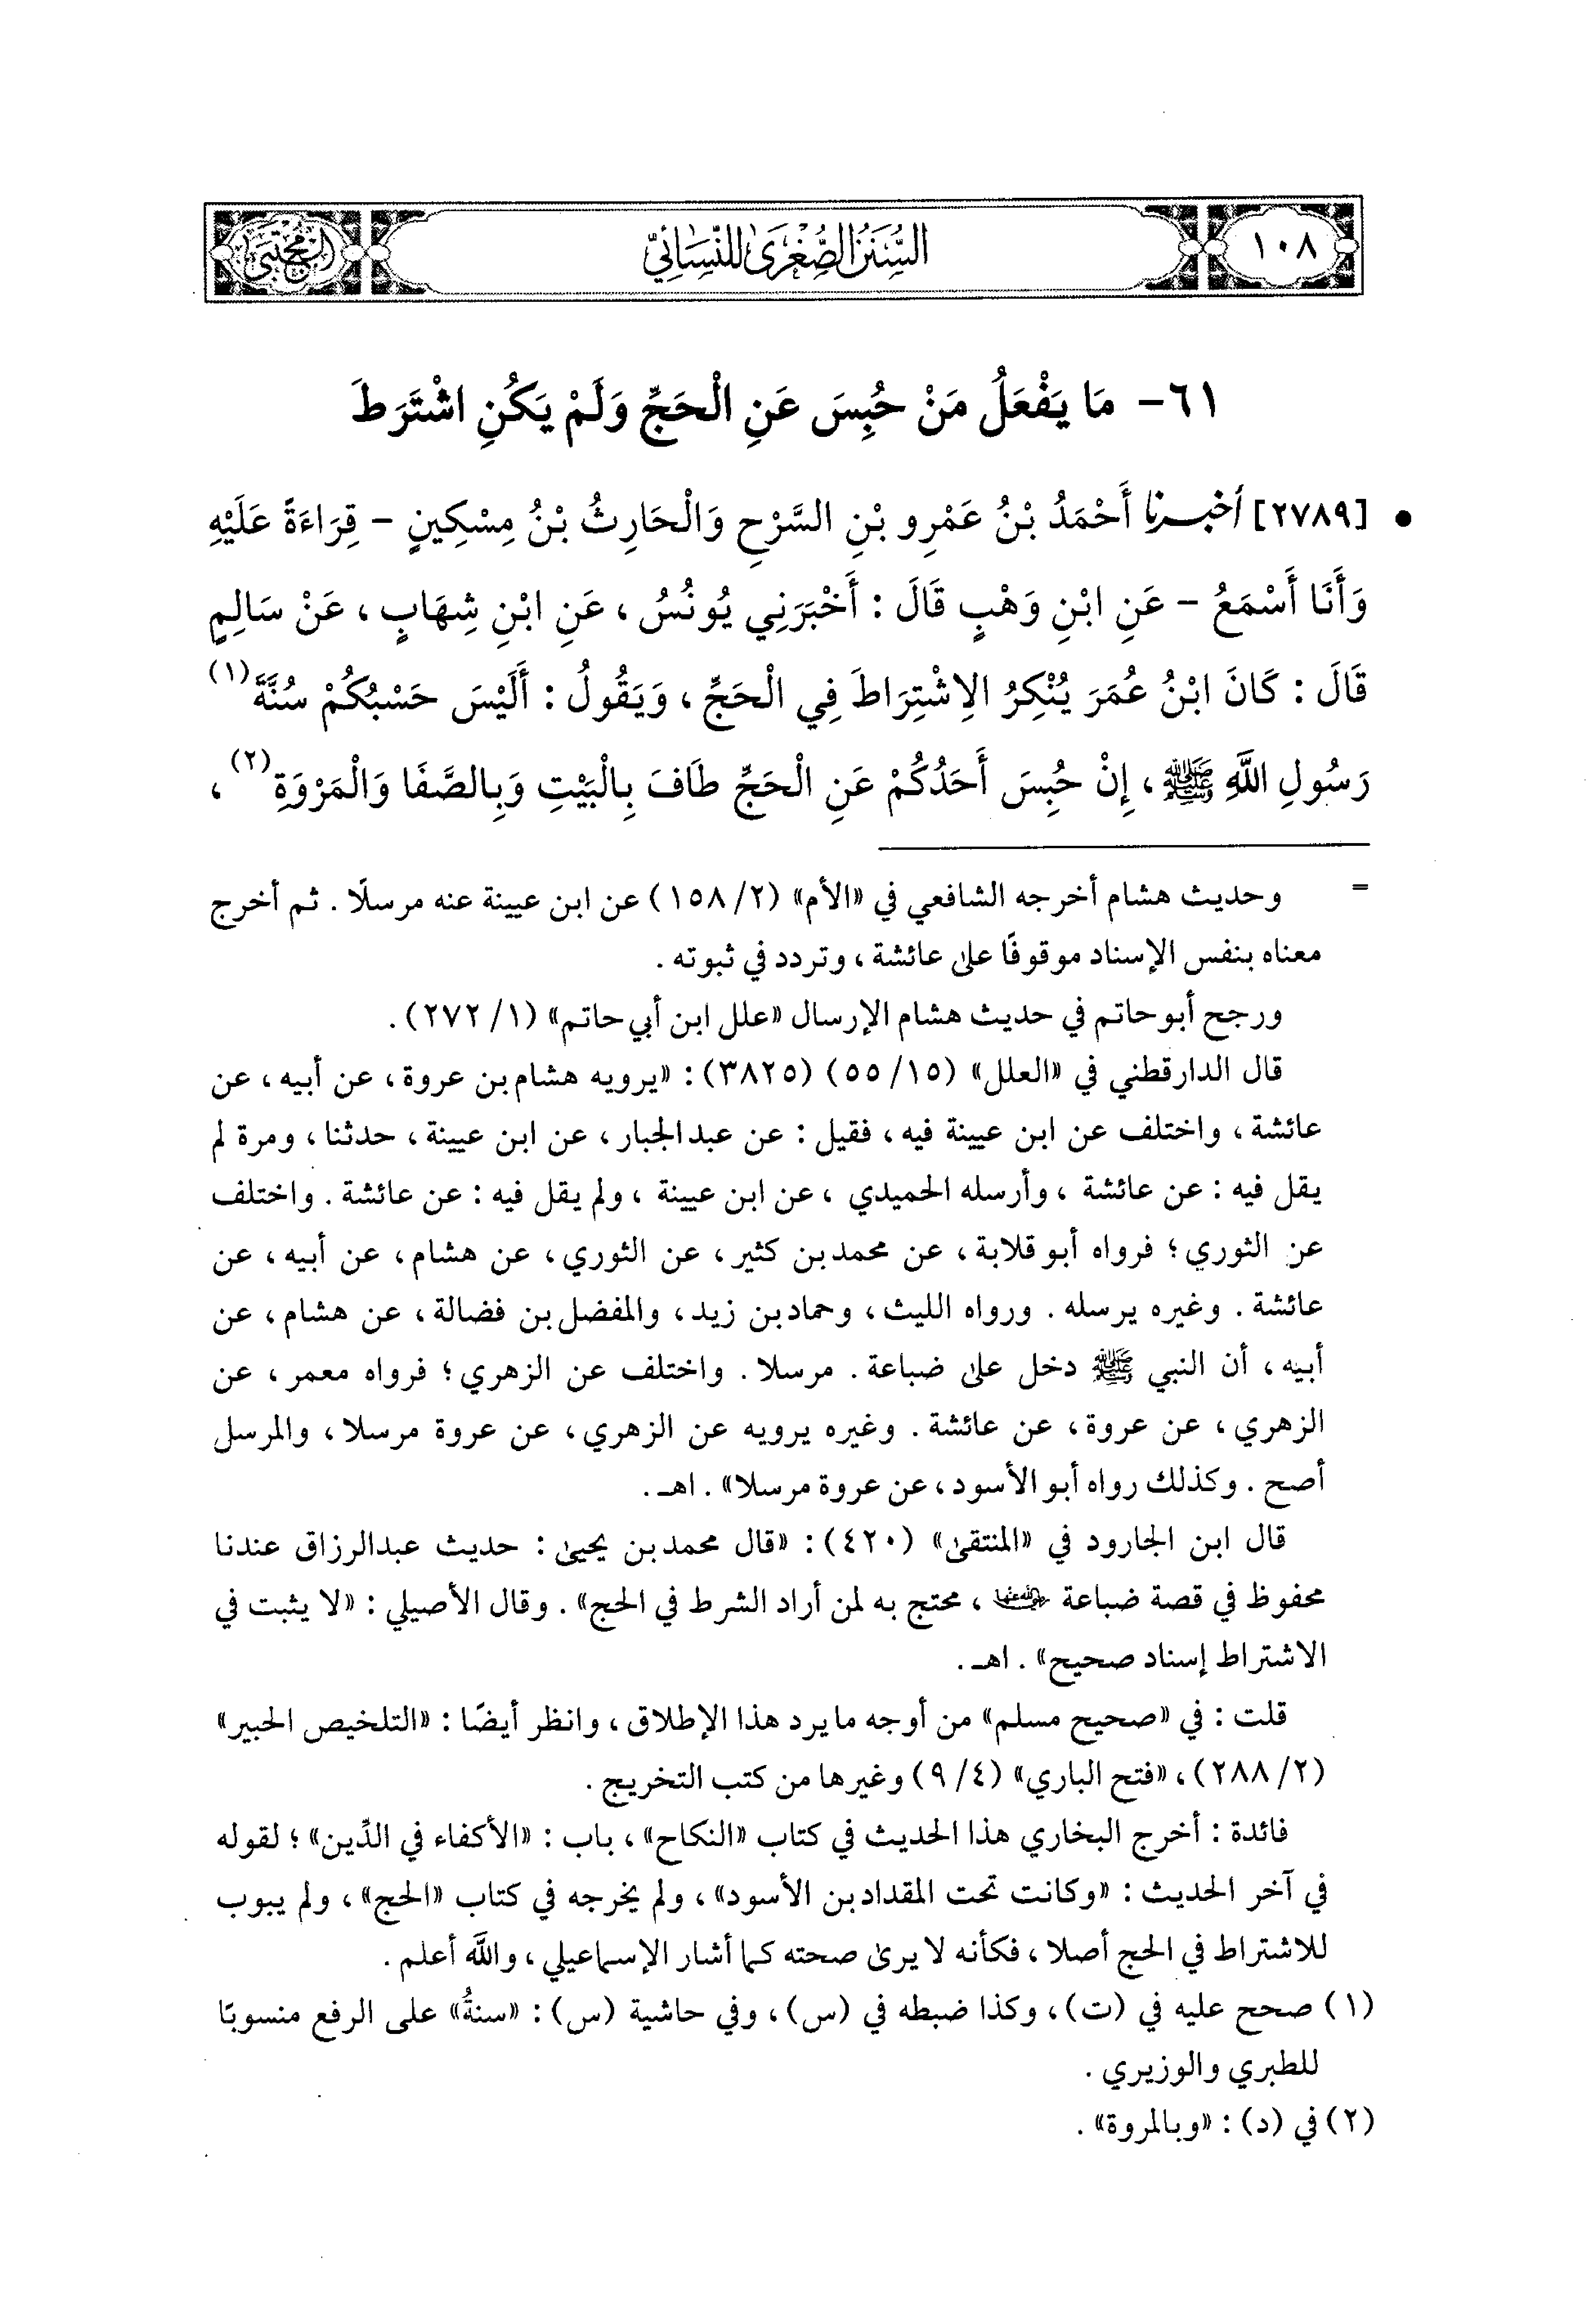 ١٠٨
السُّنَنُ الصُّغْرَى لِلنَّسَائِيِّ
المجتبى
٦١- مَا يَفْعَلُ مَنْ حُبِسَ عَنِ الْحَجِّ وَلَمْ يَكُنِ اشْتَرَطَ
• [٢٧٨٩] أخبرنا أَحْمَدُ بْنُ عَمْرِو بْنِ السَّرْحِ وَالْحَارِثُ بْنُ مِسْكِينٍ - قِرَاءَةً عَلَيْهِ
وَأَنَا أَسْمَعُ - عَنِ ابْنِ وَهْبٍ قَالَ : أَخْبَرَنِي يُونُسُ ، عَنِ ابْنِ شِهَابٍ ، عَنْ سَالِمٍ
قَالَ : كَانَ ابْنُ عُمَرَ يُنْكِرُ الِاشْتِرَاطَ فِي الْحَجِّ ، وَيَقُولُ : أَلَيْسَ حَسْبُكُمْ سُنَّةَ(١)
رَسُولِ اللَّهِ ﷺ ، إِنْ حُبِسَ أَحَدُكُمْ عَنِ الْحَجِّ طَافَ بِالْبَيْتِ وَبِالصَّفَا وَالْمَرْوَةِ(٢) ،
= وحديث هشام أخرجه الشافعي في «الأم» (٢/ ١٥٨) عن ابن عيينة عنه مرسلًا . ثم أخرج
معناه بنفس الإسناد موقوفًا على عائشة ، وتردد في ثبوته .
ورجح أبو حاتم في حديث هشام الإرسال «علل ابن أبي حاتم» (١/ ٢٧٢) .
قال الدارقطني في «العلل» (١٥/ ٥٥) (٣٨٢٥) : «يرويه هشام بن عروة ، عن أبيه ، عن
عائشة ، واختلف عن ابن عيينة فيه ، فقيل : عن عبد الجبار ، عن ابن عيينة ، حدثنا ، ومرة لم
يقل فيه : عن عائشة ، وأرسله الحميدي ، عن ابن عيينة ، ولم يقل فيه : عن عائشة . واختلف
عن الثوري ؛ فرواه أبو قلابة ، عن محمد بن كثير ، عن الثوري ، عن هشام ، عن أبيه ، عن
عائشة . وغيره يرسله . ورواه الليث ، وحماد بن زيد ، والمفضل بن فضالة ، عن هشام ، عن
أبيه ، أن النبي ﷺ دخل على ضباعة . مرسلا . واختلف عن الزهري ؛ فرواه معمر ، عن
الزهري ، عن عروة ، عن عائشة . وغيره يرويه عن الزهري ، عن عروة مرسلا ، والمرسل
أصح . وكذلك رواه أبو الأسود ، عن عروة مرسلا» . اهـ .
قال ابن الجارود في «المنتقى» (٤٢٠) : «قال محمد بن يحيى : حديث عبد الرزاق عندنا
محفوظ في قصة ضباعة رضي الله عنها ، محتج به لمن أراد الشرط في الحج» . وقال الأصيلي : «لا يثبت في
الاشتراط إسناد صحيح» . اهـ .
قلت : في «صحيح مسلم» من أوجه ما يرد هذا الإطلاق ، وانظر أيضًا : «التلخيص الحبير»
(٢/ ٢٨٨) ، «فتح الباري» (٤/ ٩) وغيرها من كتب التخريج .
فائدة : أخرج البخاري هذا الحديث في كتاب «النكاح» ، باب : «الأكفاء في الدِّين» ؛ لقوله
في آخر الحديث : «وكانت تحت المقداد بن الأسود» ، ولم يخرجه في كتاب «الحج» ، ولم يبوب
للاشتراط في الحج أصلا ، فكأنه لا يرى صحته كما أشار الإسماعيلي ، والله أعلم .
(١) صحح عليه في (ت) ، وكذا ضبطه في (س) ، وفي حاشية (س) : «سنةُ» على الرفع منسوبًا
للطبري والوزيري .
(٢) في (د) : «وبالمروة» .